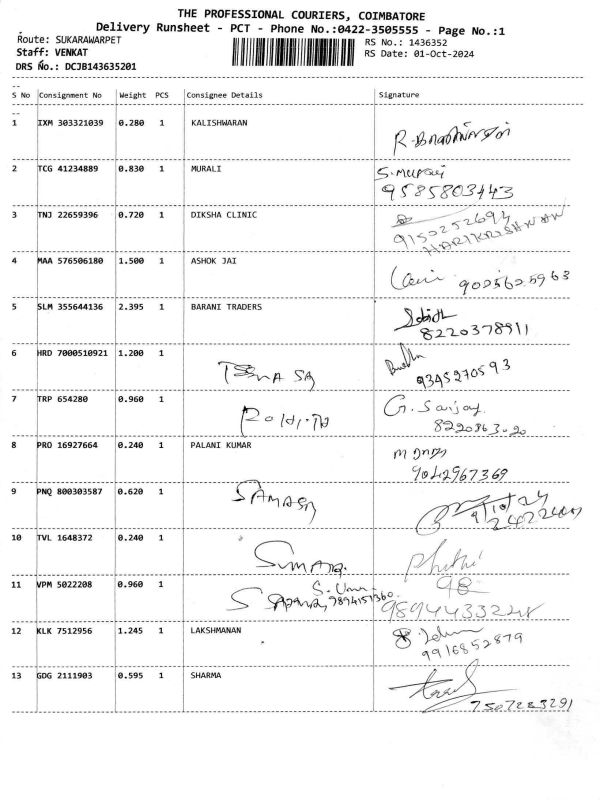 THE PROFESSIONAL COURIERS, COIMBATORE
Delivery Runsheet - PCT - Phone No.:0422-3505555 - Page No.:1
Route: SUKARAWARPET
RS No.: 1436352
Staff: VENKAT
RS Date: 01-Oct-2024
DRS No.: DCJB143635201
S No Consignment No Weight PCS Consignee Details Signature
1 IXM 303321039 0.280 1 KALISHWARAN
2 TCG 41234889 0.830 1 MURALI S.Murali
9585803443
3 TNJ 22659396 0.720 1 DIKSHA CLINIC
9150252694
HARIKRISHNAN
4 MAA 576506180 1.500 1 ASHOK JAI 9025625963
5 SLM 355644136 2.395 1 BARANI TRADERS
8220378911
6 HRD 7000510921 1.200 1
9345270593
7 TRP 654280 0.960 1 G. Sanjay
8 PRO 16927664 0.240 1 PALANI KUMAR
9042967369
9 PNQ 800303587 0.620 1
9/10/24
10 TVL 1648372 0.240 1
11 VPM 5022208 0.960 1 S. Uma 98
9894151360
12 KLK 7512956 1.245 1 LAKSHMANAN
9916852879
13 GDG 2111903 0.595 1 SHARMA